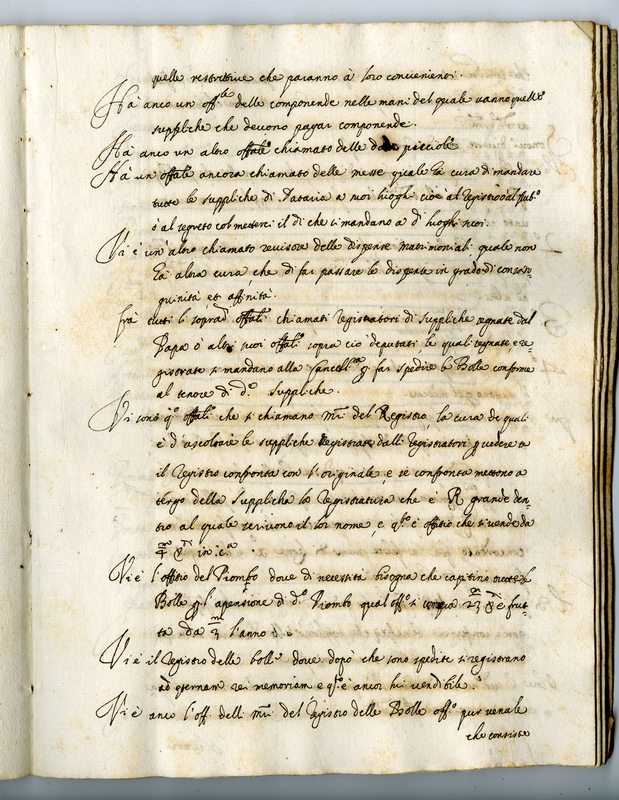 quelle restrittive che paranno à loro convenienti.
Hà anco un off.le delle componende nelle mani del quale vanno quelle
suppliche che devono pagar componende.
Hà anco un altro offale chiamato delle date picciole
Hà un offale ancora chiamato delle messe quale hà cura di mandare
tutte le suppliche di Dataria a suoi luoghi cioè al registro
ò al segreto col metterci il di che si mandano a d.i luoghi suoi.
Vi è un'altro chiamato revisore delle dispense matrimoniali quale non
hà altra cura che di far passare le dispense in grado di consan-
guinità et affinità.
frà tutti li soprad.i offali chiamati registratori di suppliche segnate dal
Papa ò altri suoi offali sopra ciò deputati le quali segnate e re-
gistrate si mandano alla Cancell.ria p far spedire le Bolle conforme
al tenore di d.e suppliche.
Vi sono q.o offali che si chiamano mri del Registro, la cura de quali
è d'ascoltare le suppliche Registrate dalli registratori p vedere se
il registro confronta con l'originale, e se confronta mettono a
tergo della supplicha la Registratura che è R grande den-
tro al quale scrivono il lor nome, e q.sto è offitio che si vende da
in c.a
Vi è l'offitio del Piombo dove di necessità bisogna che capitino tutte le
Bolle p l'apensione di d.o Piombo qual off.o si compra 23 e frut-
ta da 3 l'anno
Vi è il registro delle bolle dove dopò che sono spedite si registrano
ad eternam rei memoriam e q.o è ancor lui vendibile.
Vi è anco l'off. delli mri del registro delle Bolle off.o pur venale
che consiste